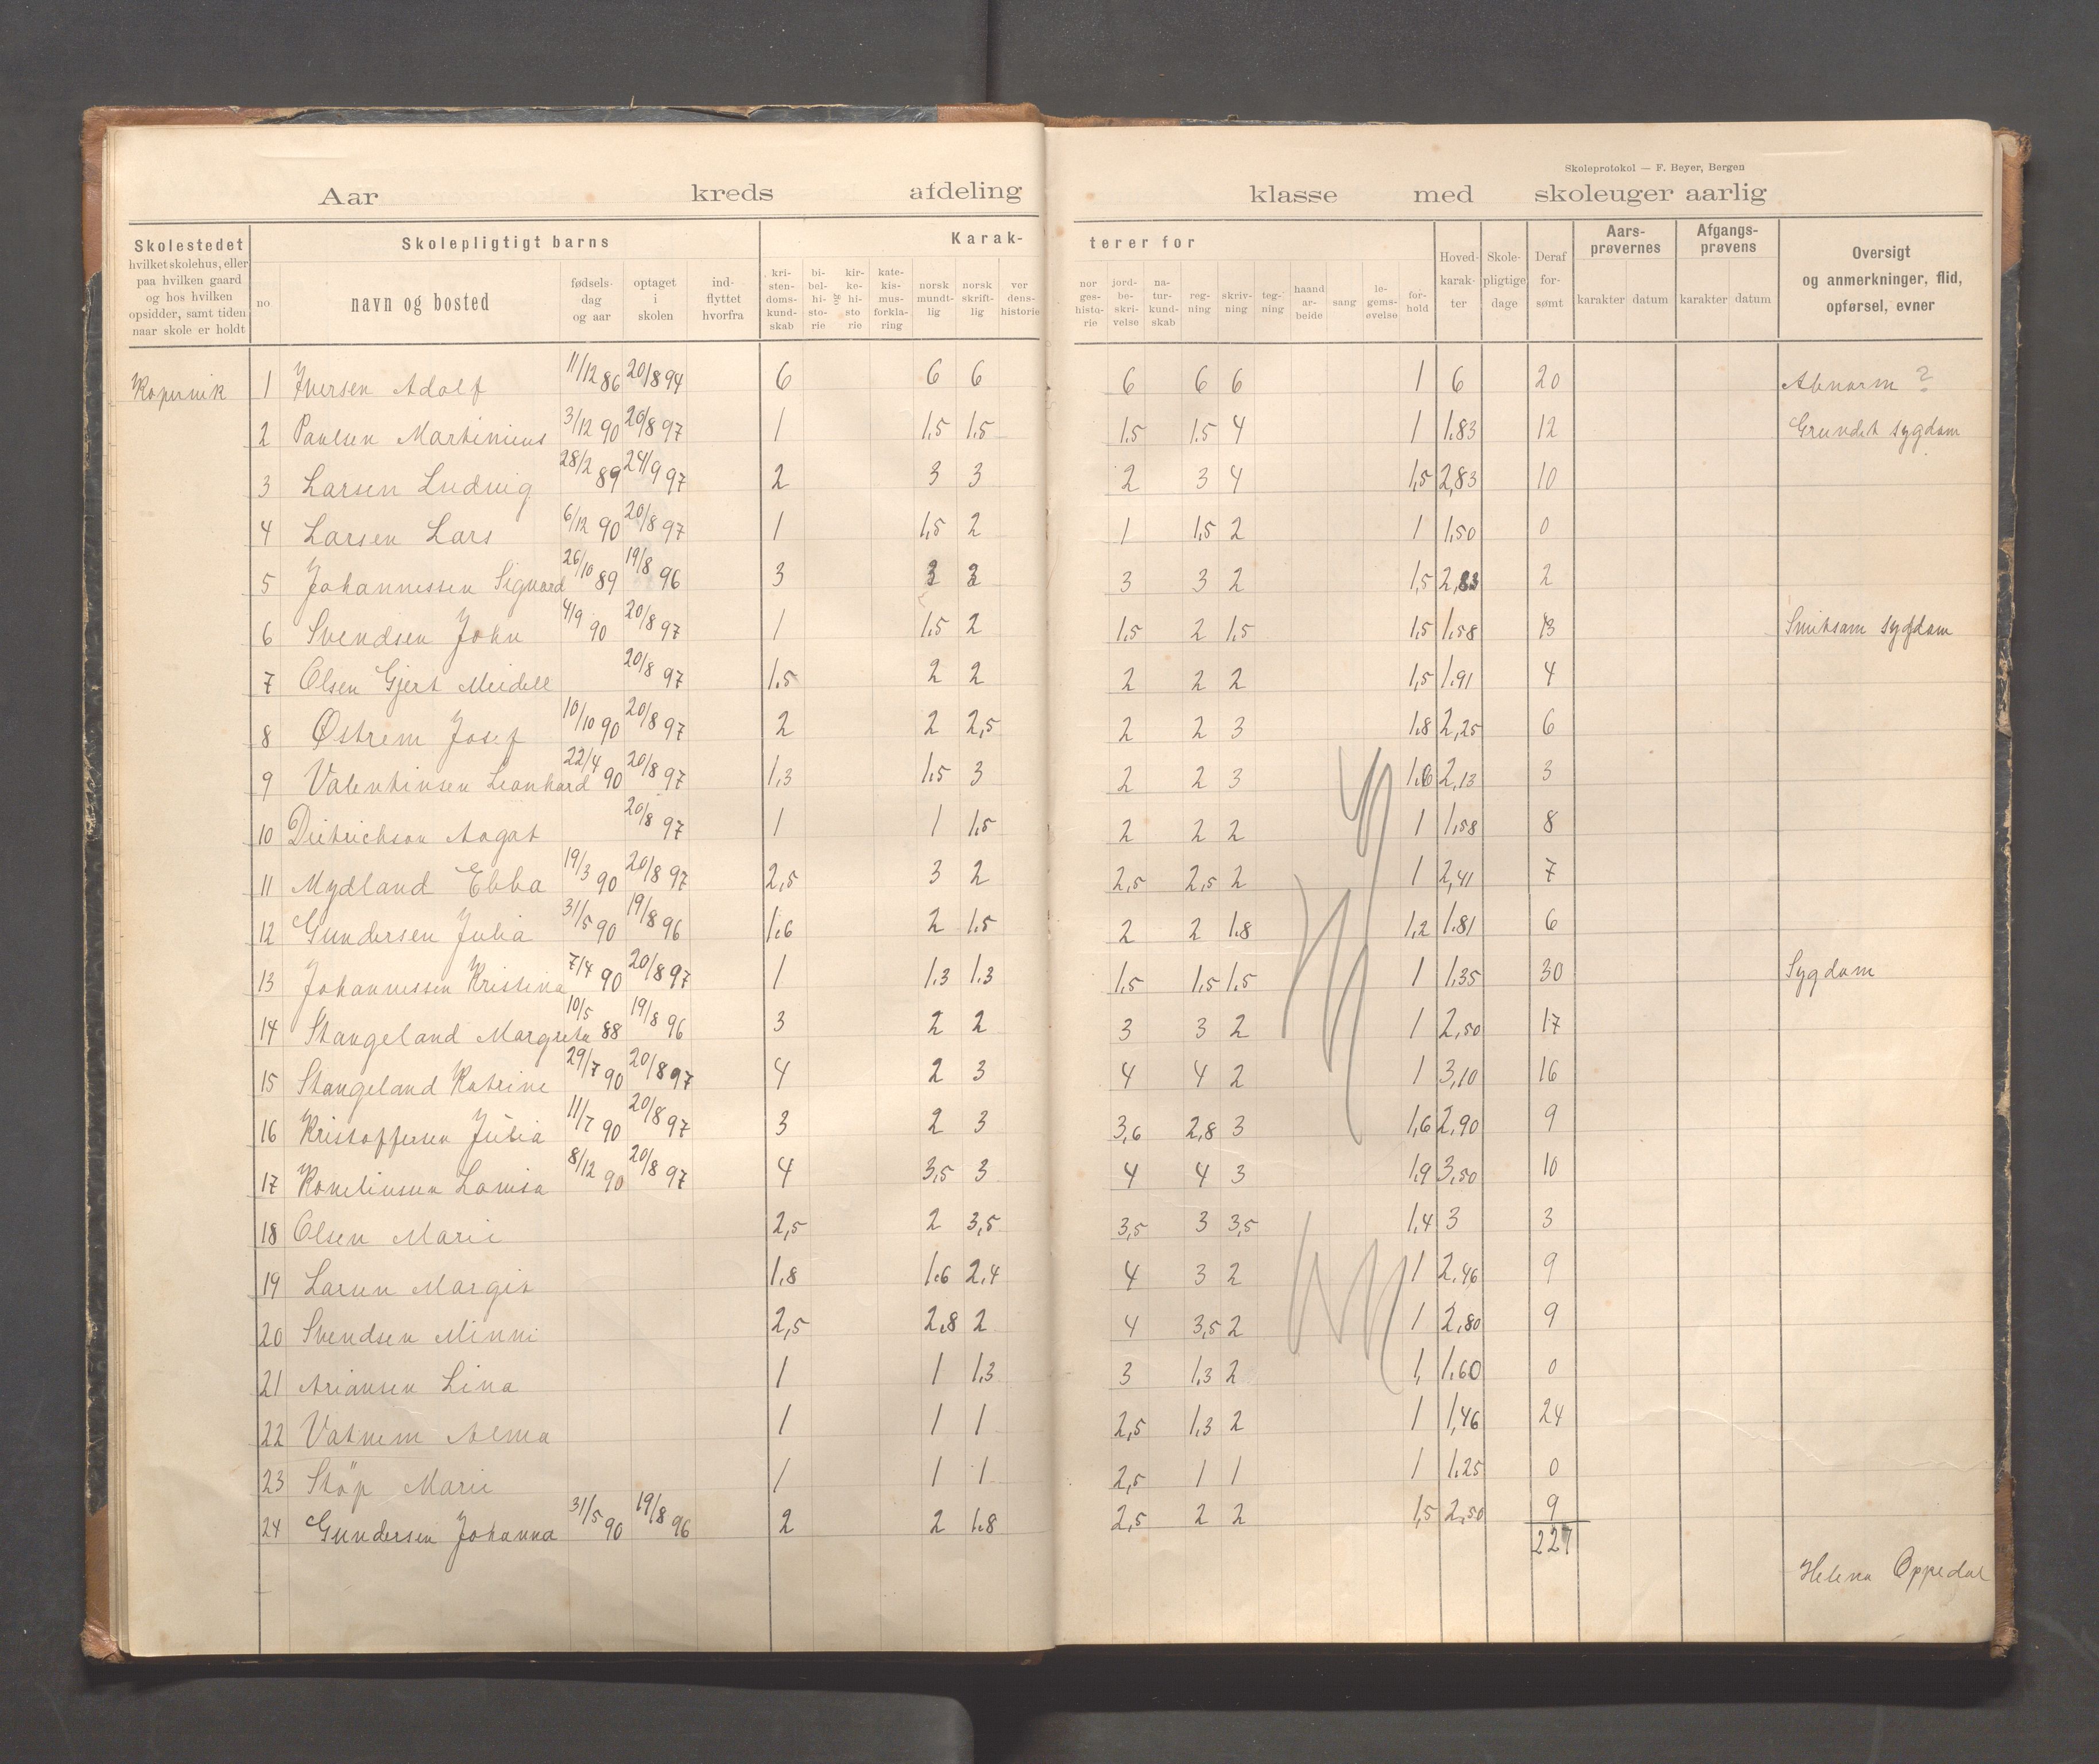 Skoleprotokol — F. Beyer, Bergen
Aar kreds afdeling klasse med skoleuger aarlig
Skolestedet
hvilket skolehus, eller
paa hvilken gaard
og hos hvilken
opsidder, samt tiden
naar skole er holdt
Skolepligtigt barns
no
navn og bosted
fødsels-
dag
og aar
optaget
i
skolen
ind-
flyttet
hvorfra
Karak-
kri-
sten-
doms-
kund-
skab
bi-
bel-
hi-
sto-
rie
og
kir-
ke-
hi-
sto
rie
kate-
kis-
mus-
forkla-
ring
norsk
mundt-
lig
norsk
skrift-
lig
ver
dens-
historie
terer for
nor
ges-
histo-
rie
jord-
be-
skri-
velse
na-
tur-
kund-
skab
reg-
ning
skriv-
ning
teg-
ning
haand
ar-
beide
sang
le-
gems-
øvelse
for-
hold
Hoved-
karak-
ter
Skole-
pligtige
dage
Deraf
for-
sømt
Aars-
prøvernes
karakter datum
Afgangs-
prøvens
karakter datum
Oversigt
og anmerkninger, flid,
opførsel, evner
Kopervik 1 Iversen Adolf 11/12 86 20/8 94 6 6 6 6 6 6 1 6 20 Abnorm ?
2 Paulsen Martinius 3/12 90 20/8 97 1 1,5 1.5 1.5 1.5 4 1 1.83 12 Grundet sygdom
3 Larsen Ludvig 28/2 89 24/9 97 2 3 3 2 3 4 1,5 2,83 10
4 Larsen Lars 6/12 90 20/8 97 1 1,5 2 1 1,5 2 1 1,50 0
5 Johannessen Sigvard 26/10 89 19/8 96 3 3 3 3 3 2 1,5 2,83 2
6 Svendsen John 4/9 90 20/8 97 1 1.5 2 1.5 2 1.5 1.5 1.58 13 Smitsom sygdom
7 Olsen Gjert Meidell 20/8 97 1.5 2 2 2 2 2 1,5 1.91 4
8 Østrem Josef 10/10 90 20/8 97 2 2 2,5 2 2 3 1.8 2,25 6
9 Valentinsen Leonhard 22/4 90 20/8 97 1,3 1.5 3 2 2 3 1.6 2,13 3
10 Dietrichson Aagot 20/8 97 1 1 1.5 2 2 2 1 1,58 8
11 Mydland Ebba 19/3 90 20/8 97 2,5 3 2 2,5 2,5 2 1 2,41 7
12 Gundersen Julia 31/5 90 19/8 96 1.6 2 1.5 2 2 1.8 1,2 1.81 6
13 Johannessen Kristina 7/4 90 20/8 97 1 1.3 1.3 1,5 1.5 1.5 1 1.35 30 Sygdom
14 Stangeland Margreta 10/5 88 19/8 96 3 2 2 3 3 2 1 2,50 17
15 Stangeland Katrine 29/7 90 20/8 97 4 2 3 4 4 2 1 3,10 16
16 Kristoffersen Julia 11/7 90 20/8 97 3 2 3 3,6 2,8 3 1,6 2,90 9
17 Kornelinsen Lovisa 8/12 90 20/8 97 4 3,5 3 4 4 3 1,9 3,50 10
18 Olsen Marie 2,5 2 3,5 3,5 3 3,5 1,4 3 3
19 Larsen Margit 1,8 1.6 2,4 4 3 2 1 2,46 9
20 Svendsen Minni 2,5 2,8 2 4 3,5 2 1 2,80 9
21 Ariansen Lina 1 1 1,3 3 1,3 2 1, 1.60 0
22 Vatnem Alma 1 1 1 2,5 1.3 2 1 1,46 24
23 Støp Marie 1 1 1 2,5 1 1 1 1.25 0
24 Gundersen Johanna 31/5 90 19/8 96 2 2 1.8 2,5 2 2 1,5 2,50 9
227
Helena Oppedal